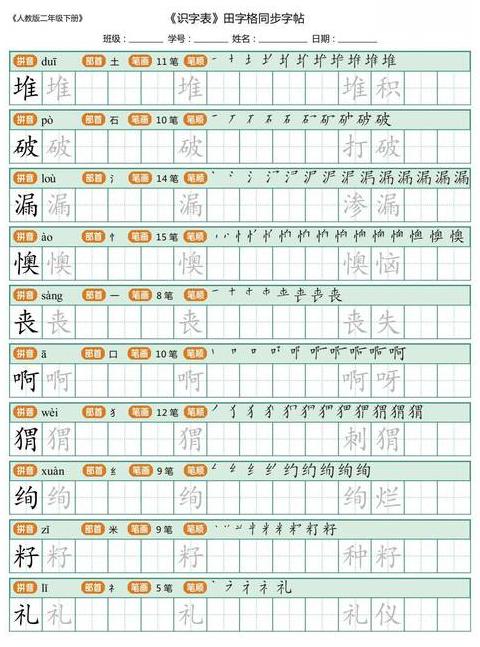 《人教版二年级下册》
《识字表》田字格同步字帖
班级：______ 学号：______ 姓名：______ 日期：______
拼音 duī 部首 土 11 笔 笔顺
堆 堆 堆 堆 积
拼音 pò 部首 石 笔画 10 笔 笔顺
破 破 破 打 破
拼音 loù 部首 氵 笔画 14 笔 笔顺
漏 漏 漏 渗 漏
拼音 ào 部首 忄 笔画 15 笔 笔顺
懊 懊 懊 懊 恼
拼音 sàng 部首 一 笔画 8 笔 笔顺
丧 丧 丧 丧 失
拼音 ā 部首 口 笔画 10 笔 笔顺
啊 啊 啊 啊 呀
拼音 wèi 部首 犭 笔画 12 笔 笔顺
猬 猬 猬 刺 猬
拼音 xuàn 部首 纟 笔画 9 笔 笔顺
绚 绚 绚 绚 烂
拼音 zǐ 部首 米 笔画 9 笔 笔顺
籽 籽 籽 种 籽
拼音 lǐ 部首 礻 笔画 5 笔 笔顺
礼 礼 礼 礼 仪